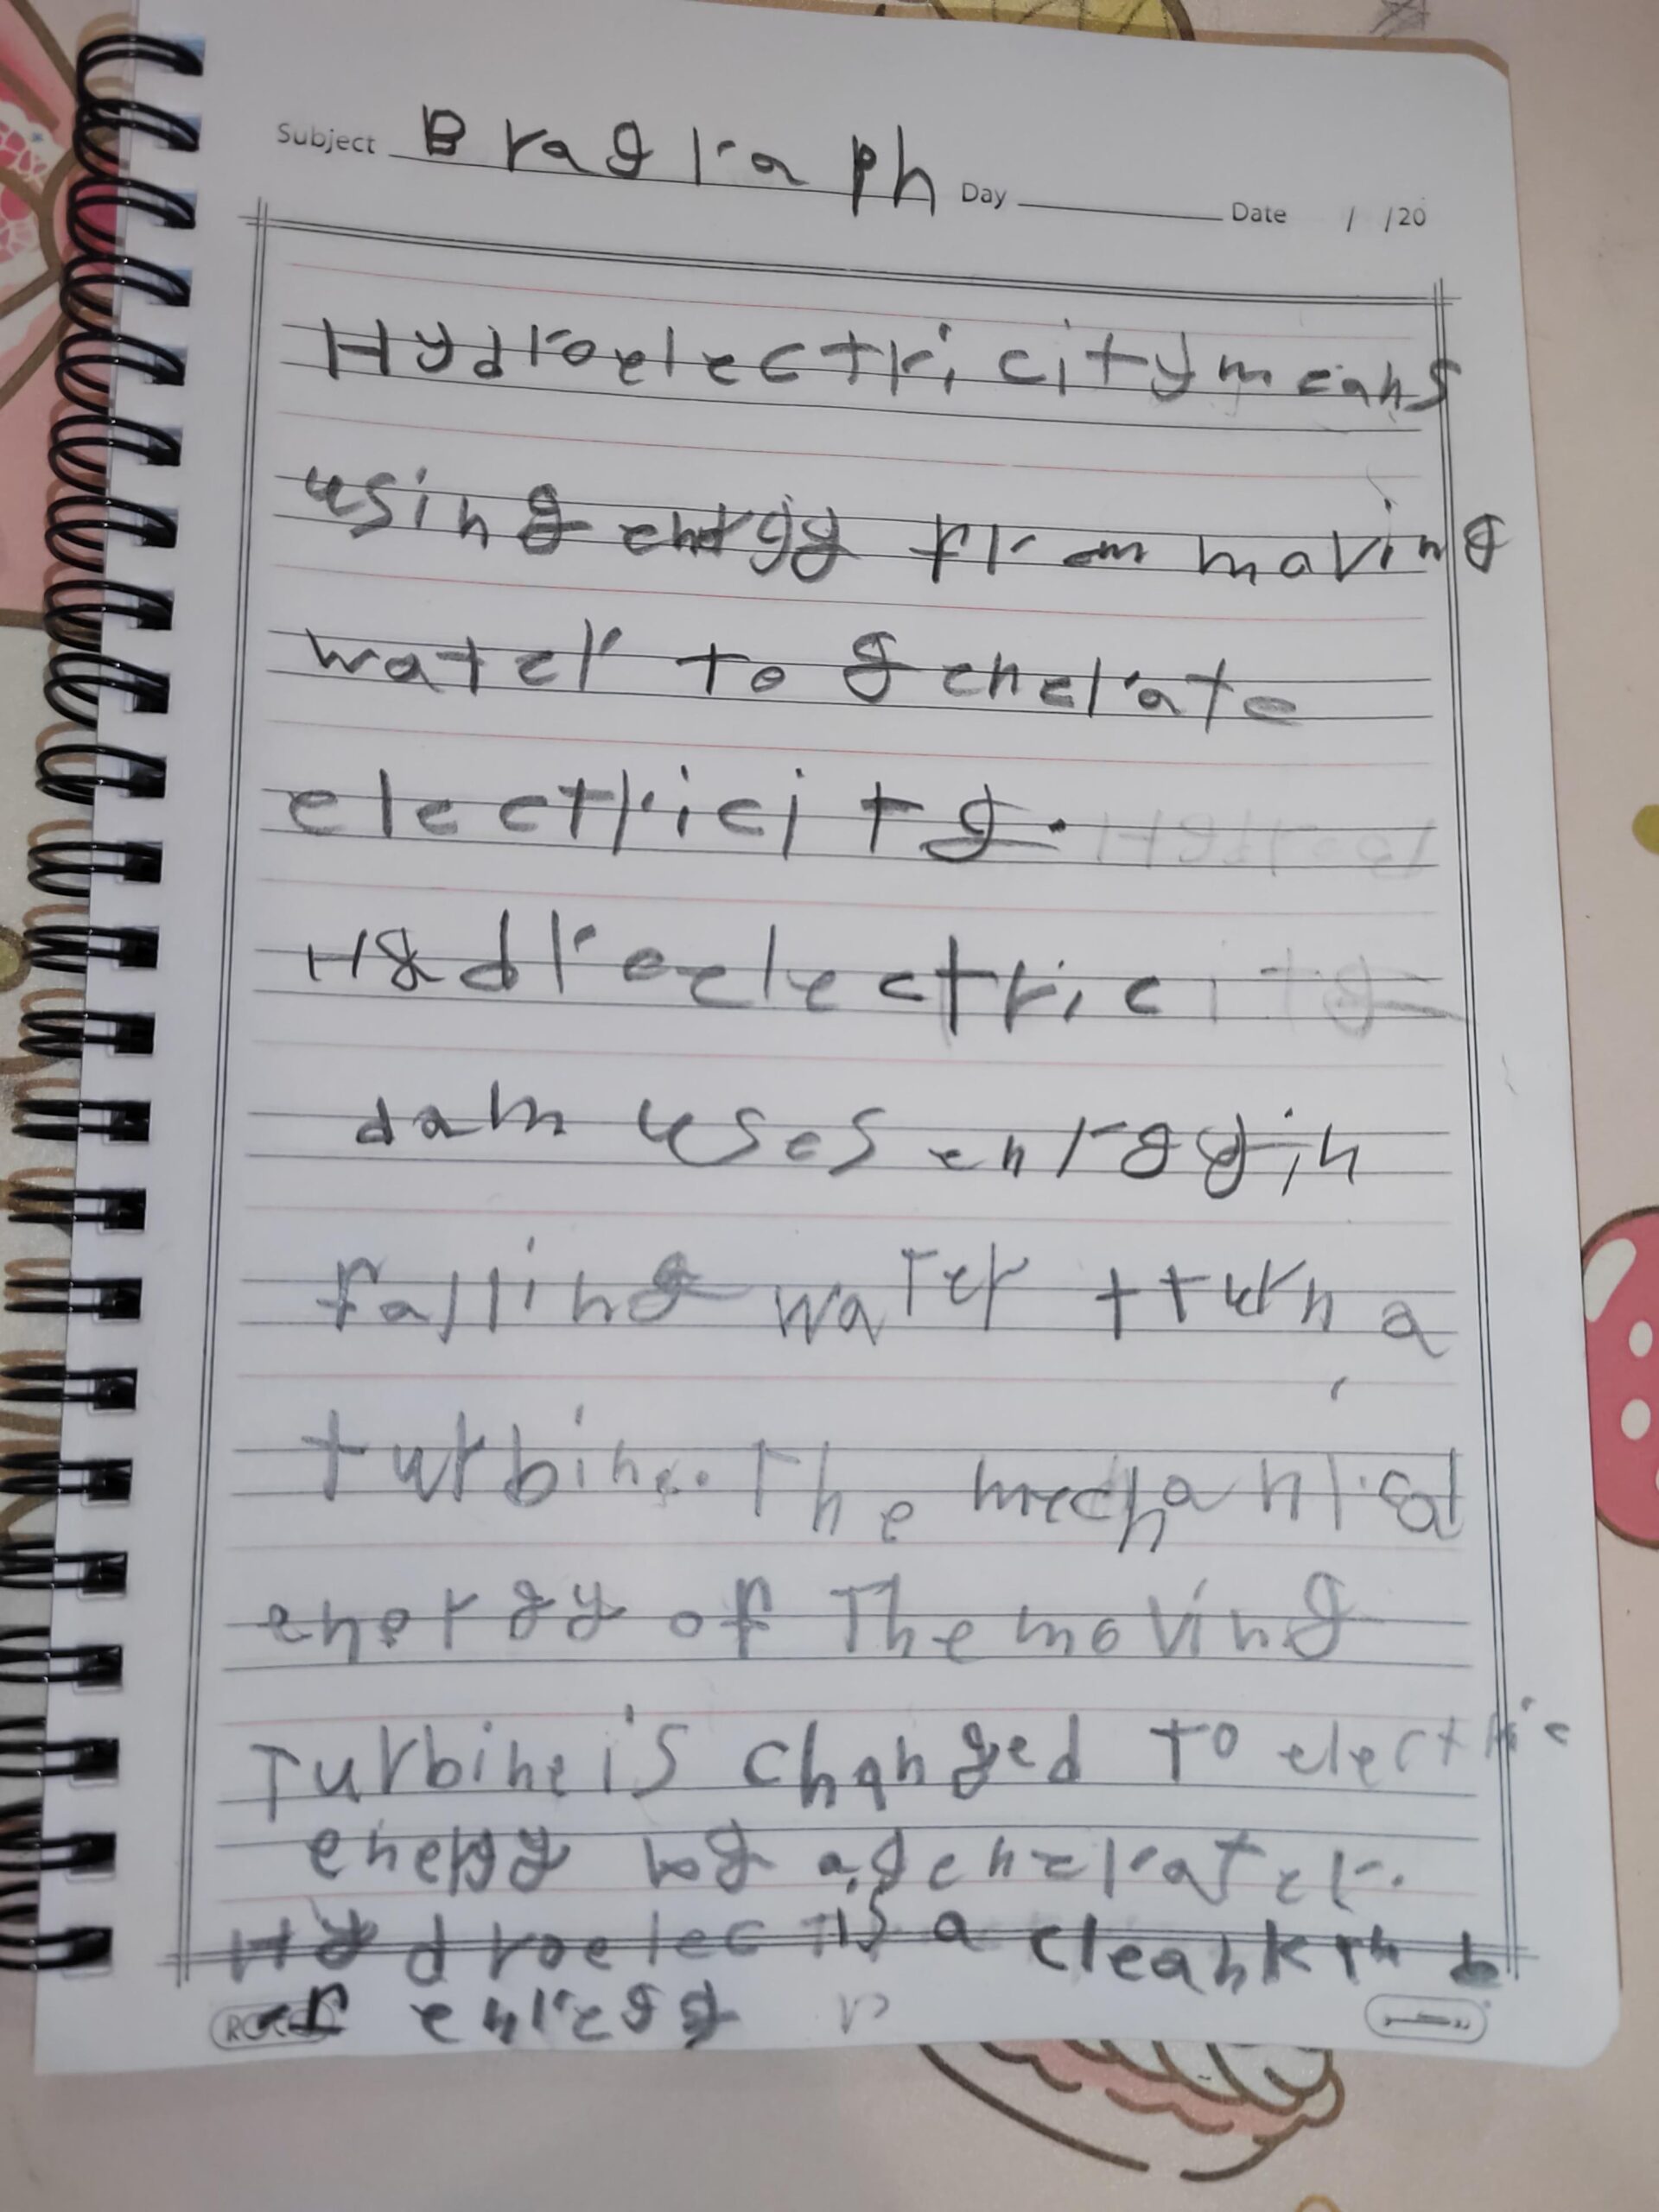 Subject Bragraph Day Date / /20
Hydroelectricity means
using energy from moving
water to generate
electricity.
Hydroelectric
dam uses enrgy in
falling water t turn a
turbine. The mechanical
energy of The moving
Turbine is changed To electric
energy by a generater.
Hydroelec is a clean kin
of enregy